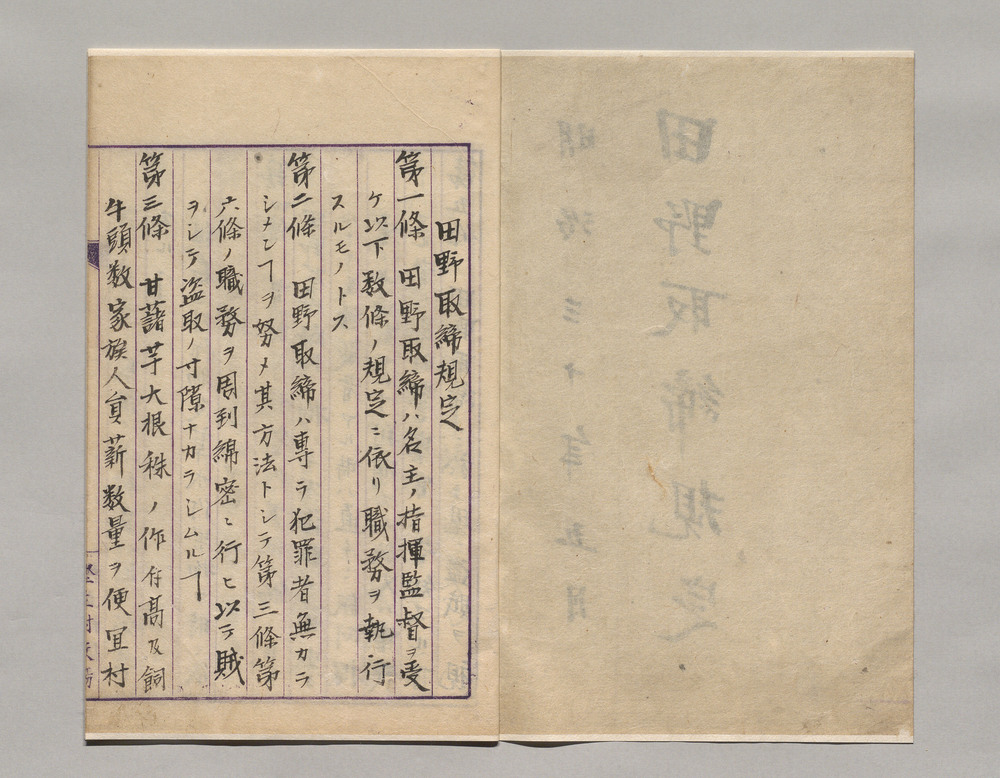 田野取締規定
第一條　田野取締ハ名主ノ指揮監督ヲ受
ケ以下数條ノ規定ニ依リ職務ヲ執行
スルモノトス
第二條　田野取締ハ専ラ犯罪者無カラ
シメンヿヲ努メ其方法トシテ第三條第
六條ノ職務ヲ周到綿密ニ行ヒ以テ賊
ヲシテ盗取ノ寸隙ナカラシムルヿ
第三條　甘藷芋大根秣ノ作付高及飼
牛頭数家族人員薪数量ヲ便宜村
田野取締規定
明治三十年五月